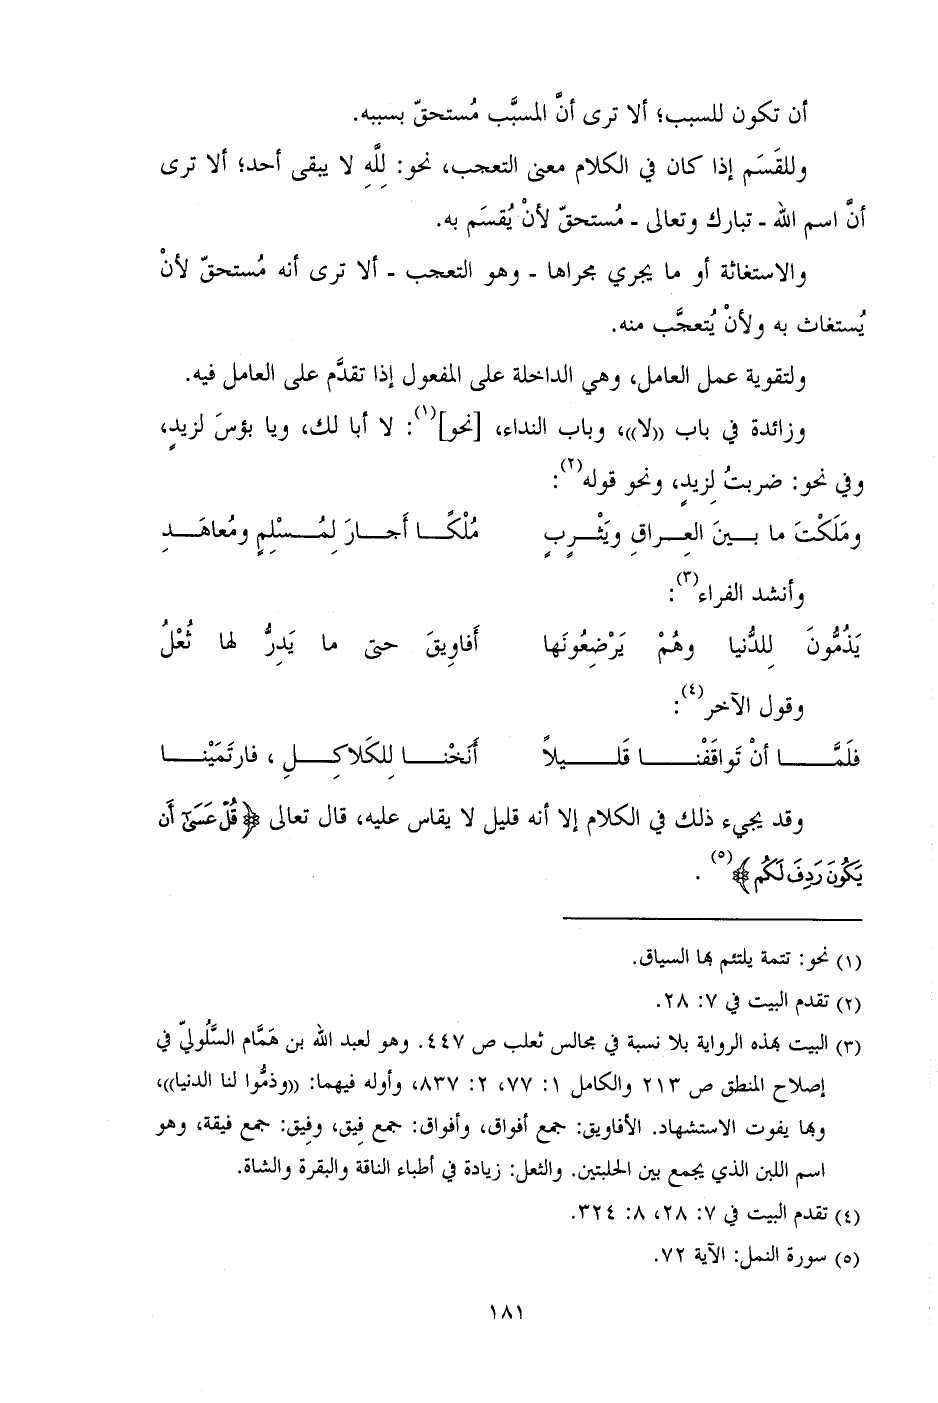 أن تكون للسبب؛ ألا ترى أنَّ المسبَّب مُستحقّ بسببه.
وللقَسَم إذا كان في الكلام معنى التعجب، نحو: لِلَّهِ لا يبقى أحد؛ ألا ترى
أنَّ اسم الله - تبارك وتعالى - مُستحقّ لأنْ يُقسَم به.
والاستغاثة أو ما يجري مجراها - وهو التعجب - ألا ترى أنه مُستحقّ لأنْ
يُستغاث به ولأنْ يُتعجَّب منه.
ولتقوية عمل العامل، وهي الداخلة على المفعول إذا تقدَّم على العامل فيه.
وزائدة في باب «لا»، وباب النداء، [نحو](١): لا أبا لك، ويا بؤسَ لزيدٍ،
وفي نحو: ضربتُ لِزيدٍ، ونحو قوله(٢):
ومَلَكْتَ ما بـــينَ العِـــراقِ ويَثْـــرِبٍ مُلْكًـــا أجـــارَ لِمُـــسْلِمٍ ومُعاهَـــدِ
وأنشد الفراء(٣):
يَذُمُّونَ لِلدُّنيا وهُمْ يَرْضِعُونَها أَفاوِيقَ حتى ما يَدِرُّ لها ثُعْلُ
وقول الآخر(٤):
فلَمَّـــا أنْ تَواقَفْنـــا قَلـــيلاً أَنَخْنـــا لِلكَلاكـــلِ، فارتَمَيْنـــا
وقد يجيء ذلك في الكلام إلا أنه قليل لا يقاس عليه، قال تعالى ﴿قُلْ عَسَىٰٓ أَن
يَكُونَ رَدِفَ لَكُم﴾(٥).
(١) نحو: تتمة يلتئم بها السياق.
(٢) تقدم البيت في ٧: ٢٨.
(٣) البيت بهذه الرواية بلا نسبة في مجالس ثعلب ص ٤٤٧. وهو لعبد الله بن هَمَّام السَّلُوليّ في
إصلاح المنطق ص ٢١٣ والكامل ١: ٧٧، ٢: ٨٣٧، وأوله فيهما: «وذمُّوا لنا الدنيا»،
وبها يفوت الاستشهاد. الأفاويق: جمع أفواق، وأفواق: جمع فِيق، وفِيق: جمع فيقة، وهو
اسم اللبن الذي يجمع بين الحلبتين. والثعل: زيادة في أطباء الناقة والبقرة والشاة.
(٤) تقدم البيت في ٧: ٢٨، ٨: ٣٢٤.
(٥) سورة النمل: الآية ٧٢.
١٨١